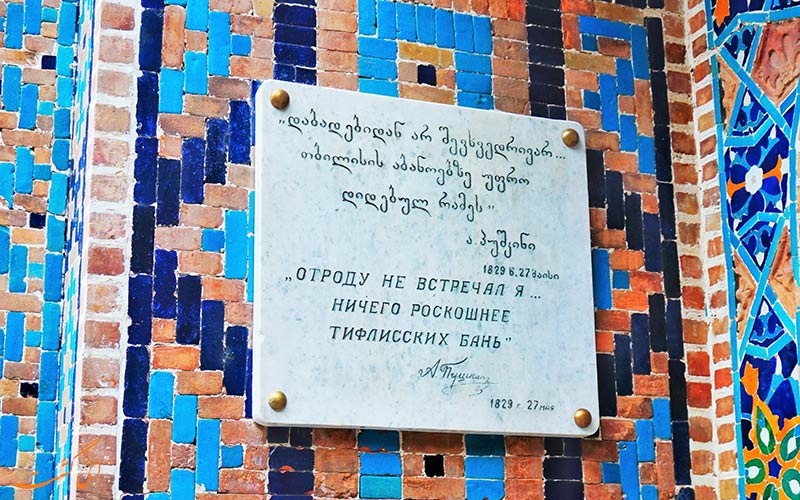 „დაბადებიდან არ შევხვედრივარ...
თბილისის აბანოებზე უფრო
დიდებულ რამეს"
ა. პუშკინი
1829 წ. 27 მაისი
„ОТРОДУ НЕ ВСТРЕЧАЛ Я...
НИЧЕГО РОСКОШНЕЕ
ТИФЛИССКИХ БАНЬ"
А Пушкинъ
1829 г. 27 мая